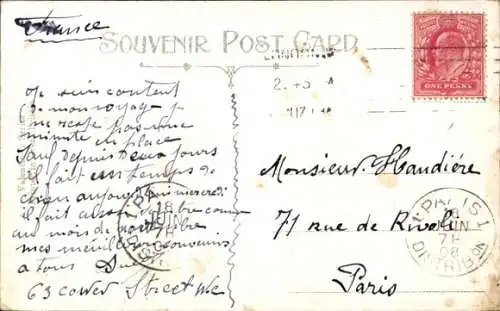 France
SOUVENIR POST CARD
ONE PENNY
Je suis content
de mon voyage je
ne reste pas une
minute en place
Sauf depuis deux jours
il fait un temps de
chien aujourd'hui mercredi
il fait aussi
au mois de novembre
mes meilleurs souvenirs
à tous
63 Gower Street W.C.
Monsieur Handiére
71 rue de Rivoli
Paris
PARIS
18
JUIN
7H
08
DISTRIBON
18
JUIN
7H